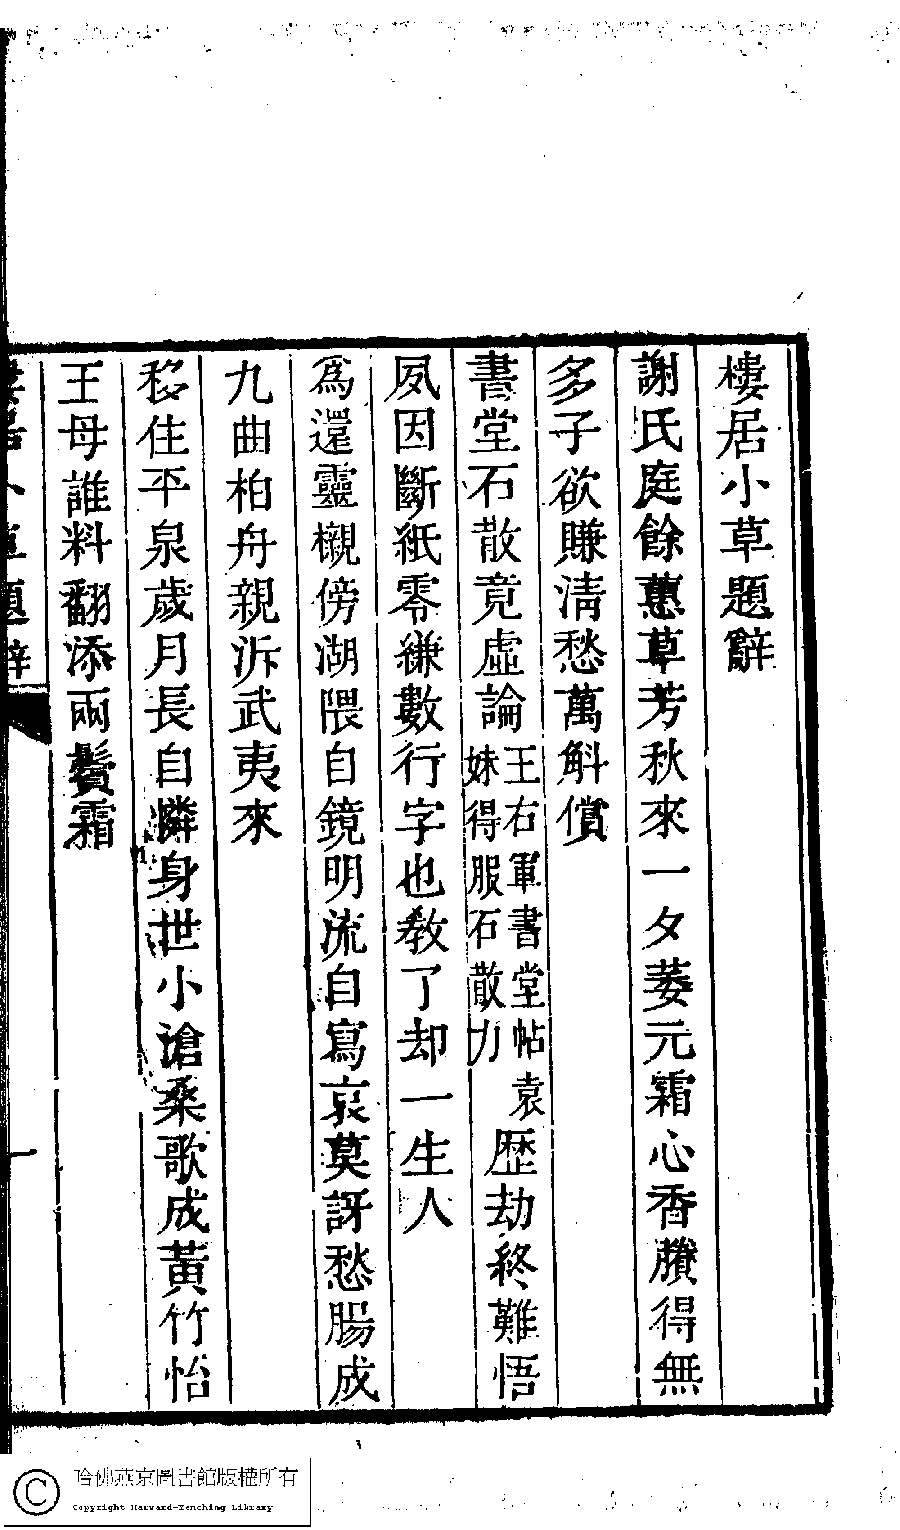 樓居小草題辭
謝氏庭餘蕙草芳秋來一夕萎元霜心香賸得無
多子欲賺清愁萬斛償
書堂石散竟虛論王右軍書堂帖袁妹得服石散力歷劫終難悟
夙因斷紙零縑數行字也教了却一生人
為還靈櫬傍湖隈自鏡明流自寫哀莫訝愁腸成
九曲柏舟親泝武夷來
移住平泉歲月長自憐身世小滄桑歌成黃竹怡
王母誰料翻添兩鬢霜
樓居小草題辭
一
哈佛燕京圖書館版權所有
Copyright Harvard-Yenching Library